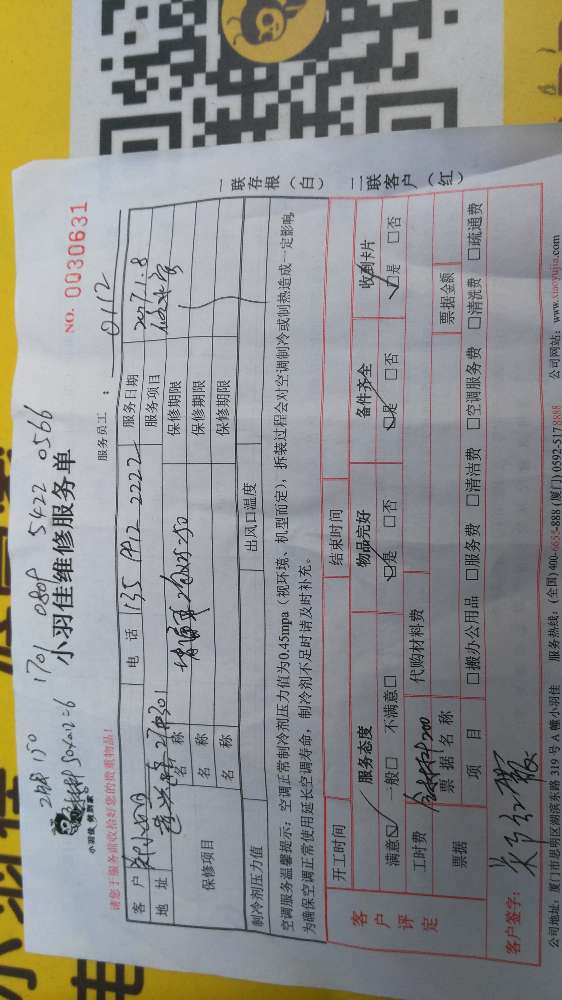 1701 0808 5422 0566
小羽佳维修服务单
NO. 0030631
小羽佳
请您于服务前收拾好您的贵重物品!
服务员工: 0112
客户 电话 135 9912 2222 服务日期 2017.1.8
地址 服务项目
保修项目 名称 保修期限
名称 保修期限
名称 保修期限
制冷剂压力值 出风口温度
空调服务温馨提示:空调正常制冷剂压力值为0.45mpa(视环境、机型而定),拆装过程会对空调制冷或制热造成一定影响,
为确保空调正常使用延长空调寿命,制冷剂不足时请及时补充。
开工时间 结束时间
客户评定 服务态度 物品完好 备件齐全 收到卡片
满意☑ 一般□ 不满意□ ☑是 □否 ☑是 □否 ☑是 □否
工时费 200 代购材料费
票据 票据名称 票据金额
项目 □搬办公用品 □服务费 □清洁费 □空调服务费 □清洗费 □疏通费
客户签字:
公司地址:厦门市思明区湖滨东路319号A幢小羽佳 服务热线:(全国)400-6655-888 (厦门)0592-5178888 公司网站:www.xiaoyujia.com
一联存根(白) 二联客户(红)